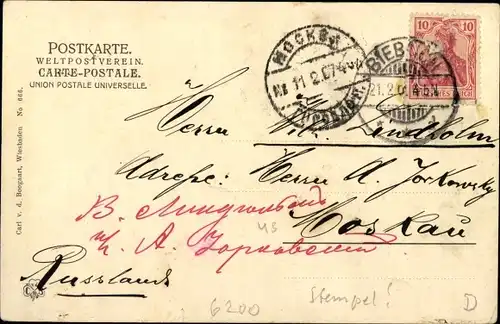 POSTKARTE.
WELTPOSTVEREIN.
CARTE-POSTALE.
UNION POSTALE UNIVERSELLE.
Carl v. d. Boogaart, Wiesbaden No 666.
МОСКВА
11 2 07
10 10
BIEBRICH
21.2.07. 4-5N.
Herrn Lindholm
Adresse: Herrn A. Jorkowsky
В. Линдгольмъ
А. Iорковский
Moskau
Russland
6200
Stempel!
D